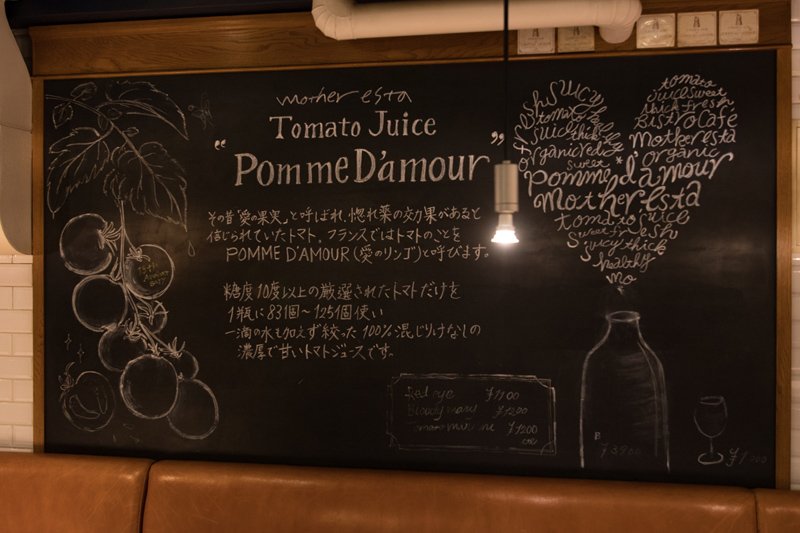 mother esta
Tomato Juice
"Pomme D'amour"
その昔「愛の果実」と呼ばれ、惚れ薬の効果があると
信じられていたトマト。フランスではトマトのことを
POMME D'AMOUR(愛のリンゴ)と呼びます。
糖度10度以上の厳選されたトマトだけを
1瓶に83個〜125個使い
一滴の水も加えず絞った100%混じりけなしの
濃厚で甘いトマトジュースです。
Red eye ¥1100
Bloody mary ¥1200
¥1200
fresh juicy
tomato
juice thick
organic red
sweet
tomato
juice sweet
thick fresh
Bistro Cafe
Mother esta
organic
Pomme d'amour
Mother esta
tomato juice
sweet fresh
juicy thick
healthy
mo
B
¥3900